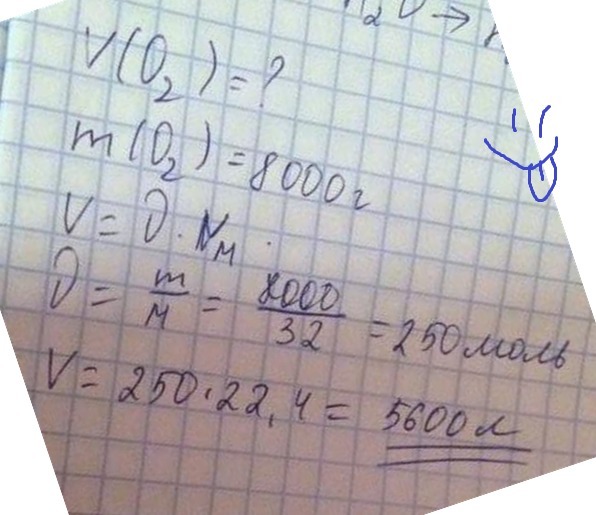 ₂O →
V(O₂) = ?
m(O₂) = 8000г
V = ν · Vм.
ν = m/M = 8000/32 = 250 моль
V = 250 · 22,4 = 5600 л